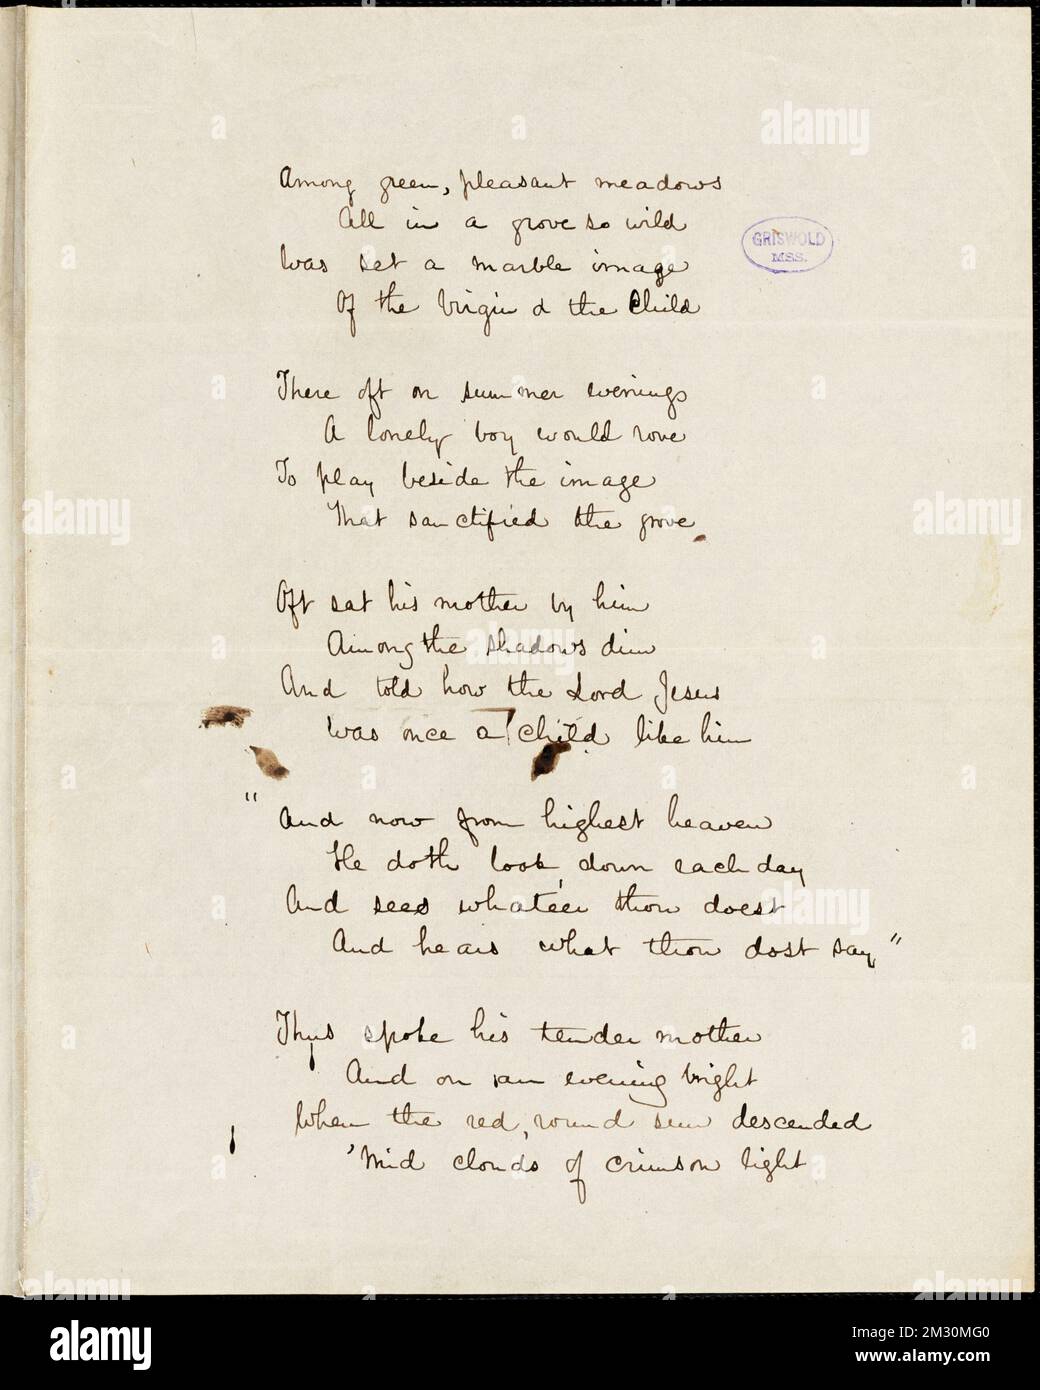 Among green, pleasant meadows
All in a grove so wild
Was set a marble image
Of the Virgin & the Child
GRISWOLD
MSS.
There oft on summer evenings
A lonely boy would rove
To play beside the image
That sanctified the grove
Oft sat his mother by him
Among the shadows dim
And told how the Lord Jesus
Was once a child like him
"And now from highest heaven
He doth look down each day
And sees whate'er thou doest
And hears what thou dost say"
Thus spoke his tender mother
And on an evening bright
When the red, round sun descended
'Mid clouds of crimson light
alamy
Image ID: 2M30MG0
www.alamy.com